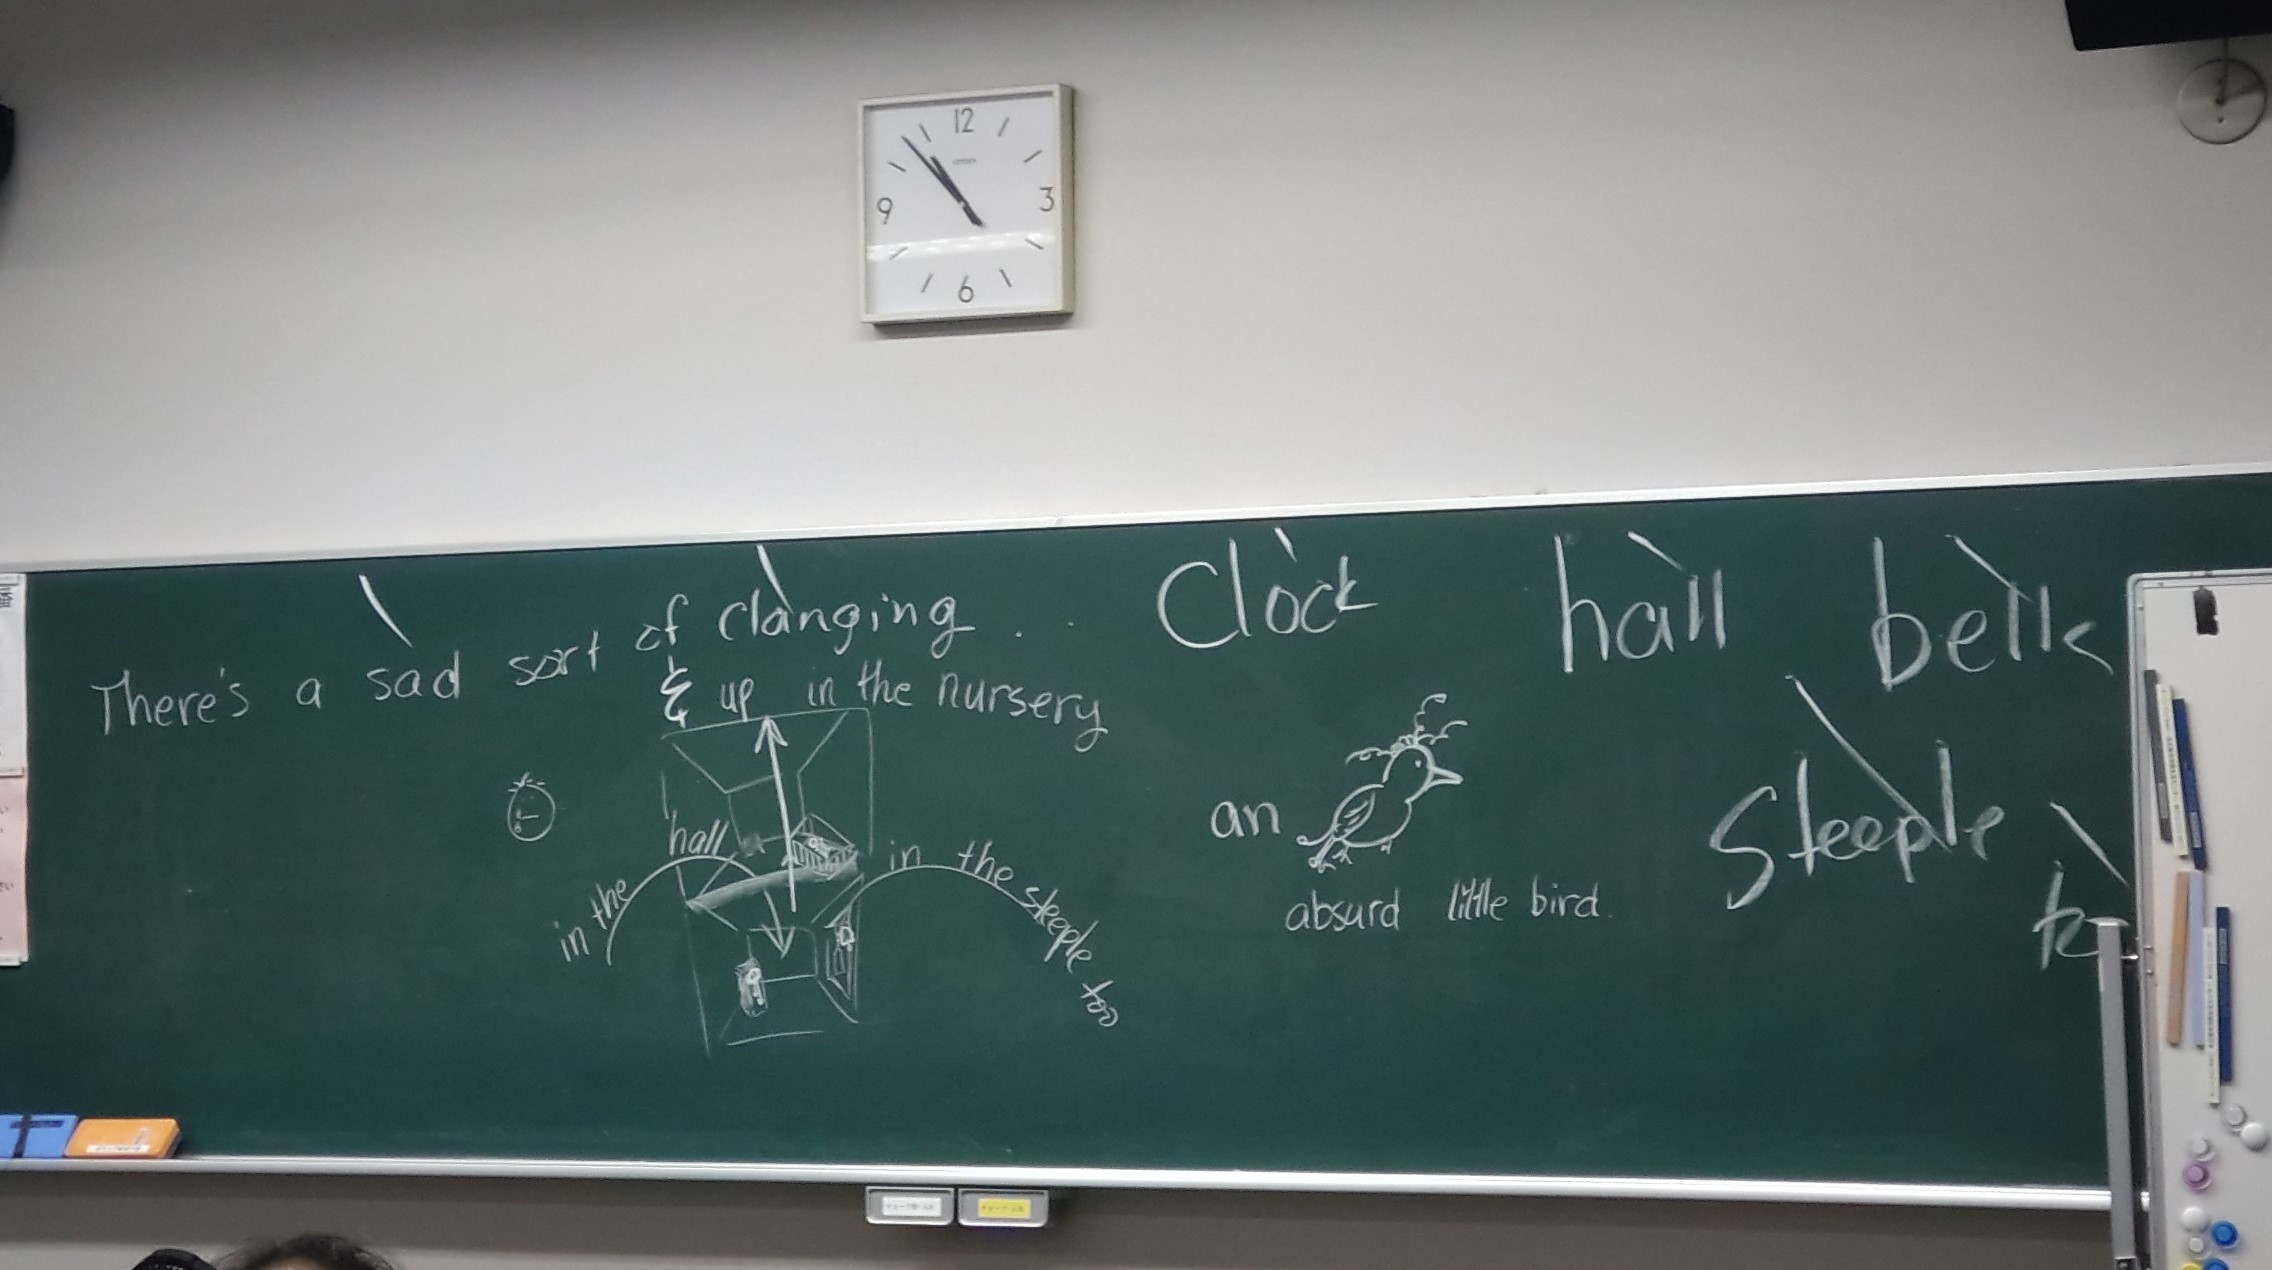 12
3
6
9
There's a sad sort of clanging . . Clock hall bells
& up in the nursery
steeple
in the hall
in the steeple too
an
absurd little bird.
to